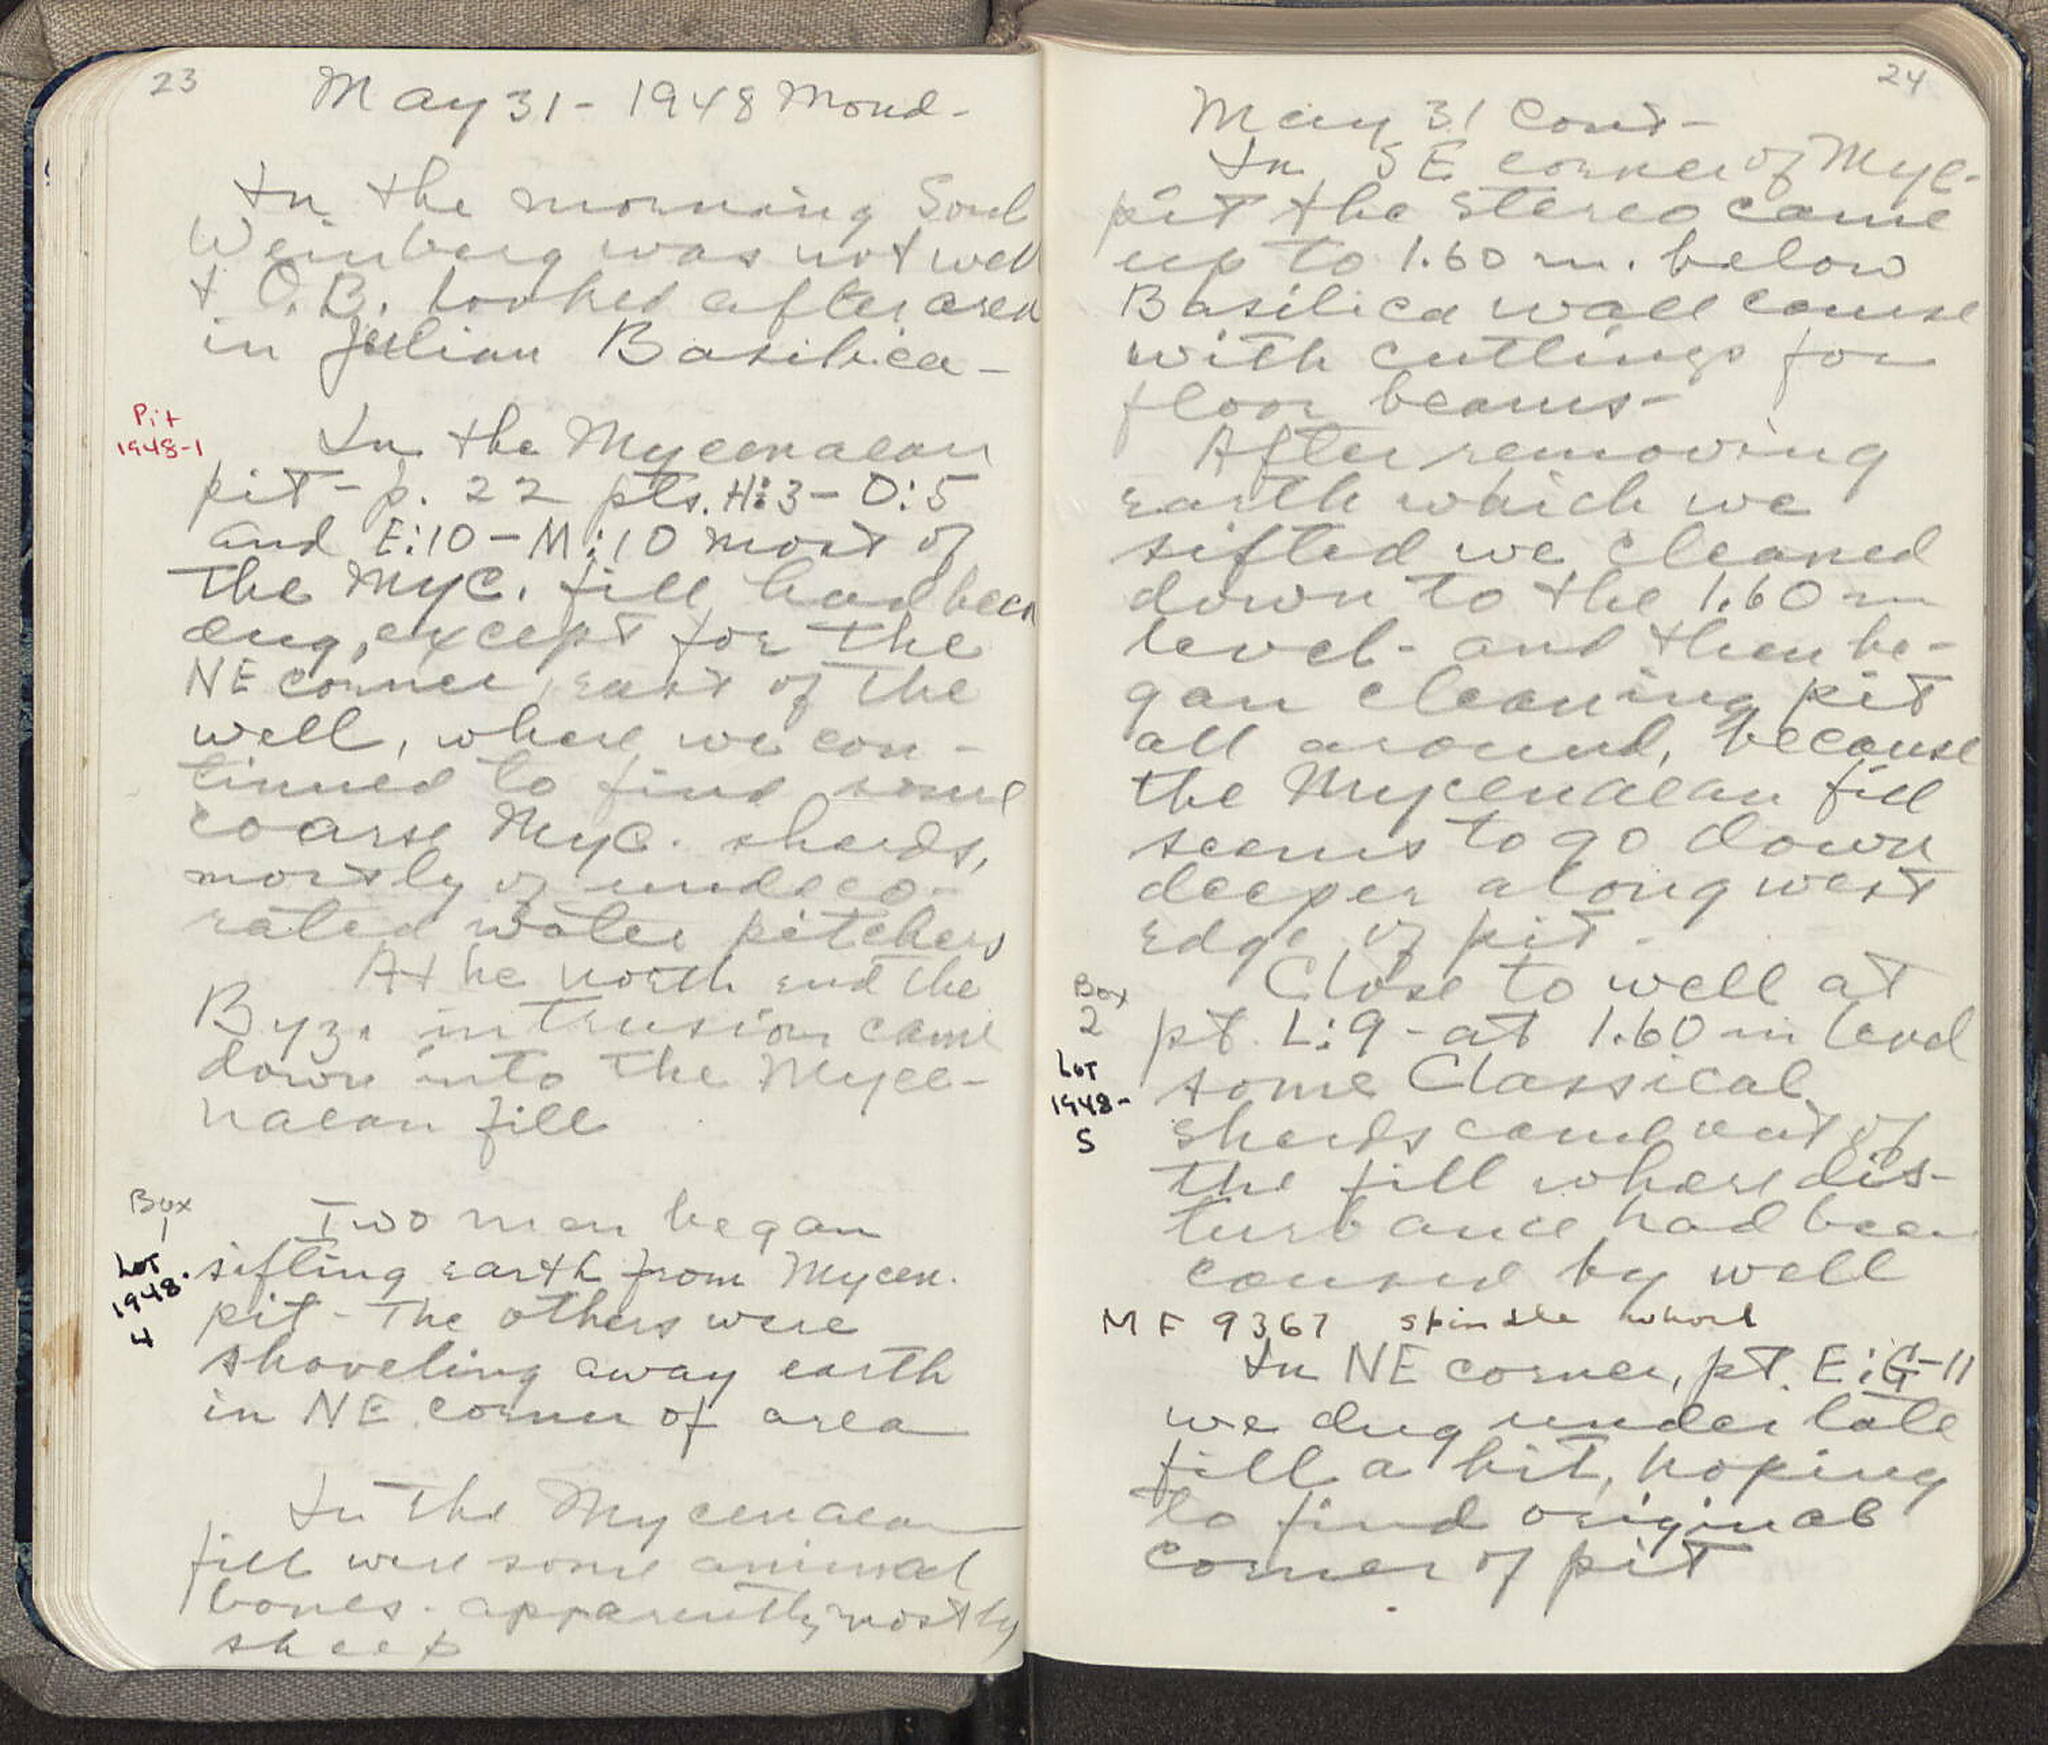 23
May 31 - 1948 Mond -
In the morning Saul
Weinberg was not well
+ O.B. looked after area
in Julian Basilica -
Pit
1948-1
In the Mycenaean
pit - p. 22 pts. H:3 - O:5
and E:10 - M:10 most of
the Myc. fill had been
dug, except for the
NE corner, east of the
well, where we con-
tinued to find some
coarse Myc. sherds,
mostly of undeco-
rated water pitchers
At he north end the
Byz. intrusion came
down into the Myce-
naean fill
Box
1
Lot
1948-
4
Two men began
sifting earth from Mycen.
pit - The others were
shoveling away earth
in NE corner of area
In the Mycenaean
fill were some animal
bones - apparently mostly
sheep
24
May 31 Cont -
In SE corner of Myc-
pit the stereo came
up to 1.60 m. below
Basilica wall course
with cuttings for
floor beams -
After removing
earth which we
sifted we cleaned
down to the 1.60 m
level - and then be-
gan cleaning pit
all around, because
the Mycenaean fill
seems to go down
deeper along west
edge of pit -
Box
2
Lot
1948-
5
Close to well at
pt. L:9 - at 1.60 m level
some Classical
sherds came out of
the fill where dis-
turbance had been
caused by well
MF 9367 spindle whorl
In NE corner, pt. E:G-11
we dug under late
fill a bit, hoping
to find original
corner of pit